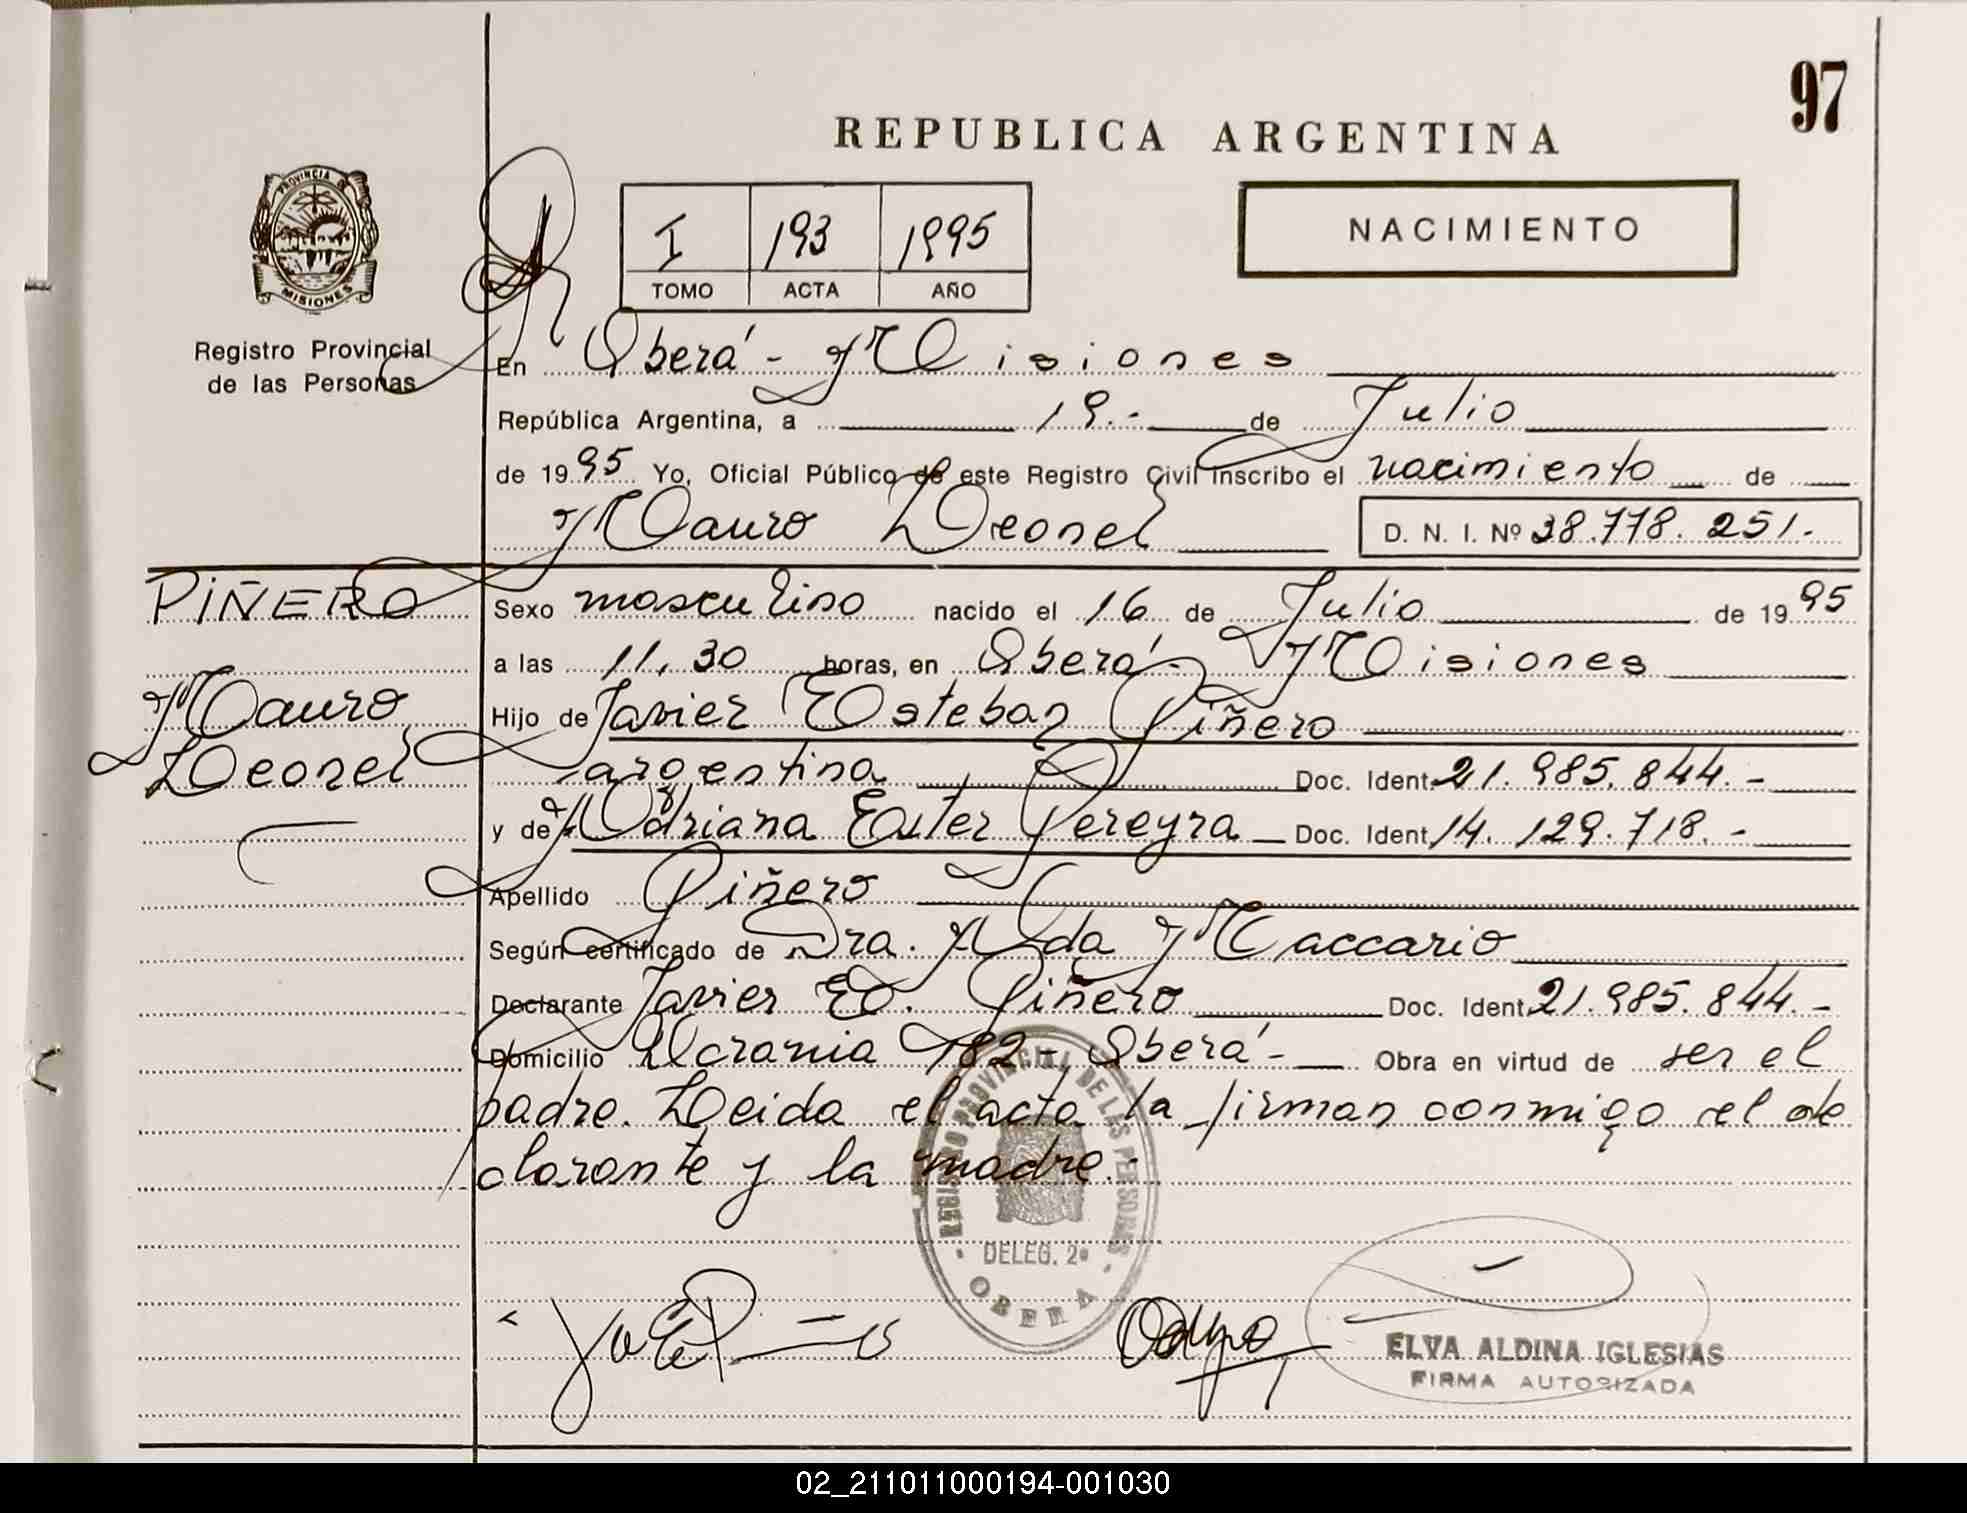 97
REPUBLICA ARGENTINA
PROVINCIA DE
MISIONES
Registro Provincial
de las Personas
I 193 1995
TOMO ACTA AÑO
NACIMIENTO
En Oberá - Misiones
República Argentina, a 19.- de Julio
de 1995 Yo, Oficial Público de este Registro Civil inscribo el nacimiento de
Mauro Leonel D. N. I. Nº 38.778.251.-
PIÑERO
Mauro
Leonel
Sexo masculino nacido el 16 de Julio de 1995
a las 11.30 horas, en Oberá - Misiones
Hijo de Javier Esteban Piñero
argentina Doc. Ident. 21.985.844.-
y de Adriana Ester Pereyra Doc. Ident. 14.129.718.-
Apellido Piñero
Según certificado de Dra. Maccario
Declarante Javier E. Piñero Doc. Ident. 21.985.844.-
Domicilio Ucrania 782 - Oberá - Obra en virtud de ser el
padre. Leida el acta la firman conmigo el de
clarante y la madre.-
REGISTRO PROVINCIAL DE LAS PERSONAS
DELEG. 2ª
OBERA
ELVA ALDINA IGLESIAS
FIRMA AUTORIZADA
02_211011000194-001030